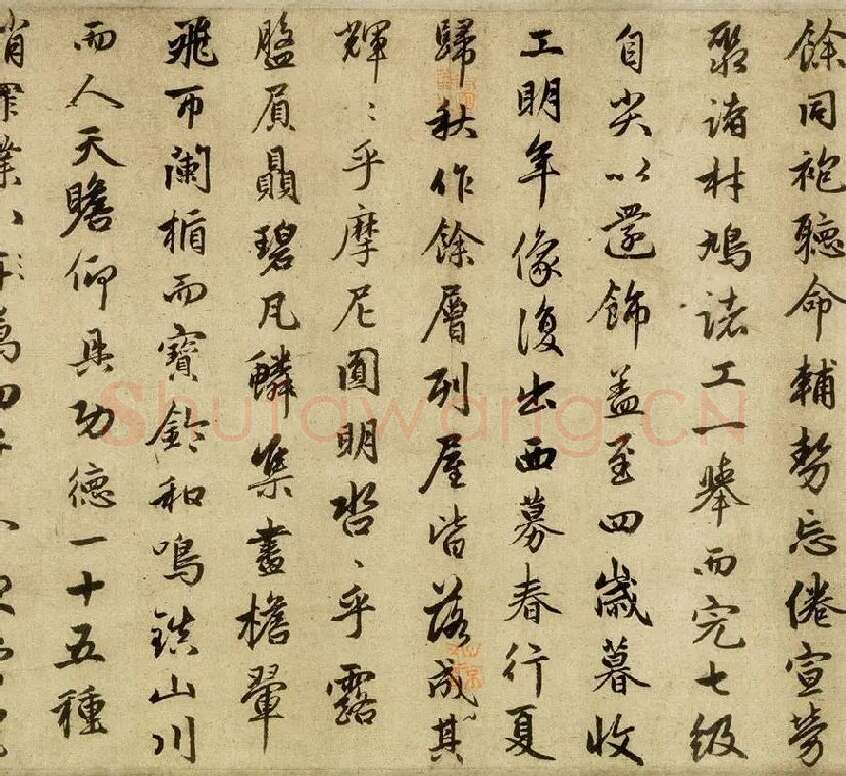 餘同袍聽命輔勢忘倦宣勞
聚諸材鳩諸工一舉而完七級
自尖以還飾盖至四歲暮收
工明年像復出西募春行夏
歸秋作餘層列屋皆落成其
輝〻乎摩尼圓明沓〻乎露
盤屓贔碧瓦鱗集畫檐翬
飛帀闌楯而寶鈴和鳴鎮山川
而人天瞻仰具功德一十五種
消罪業八
萬四千
Shufawang.CN